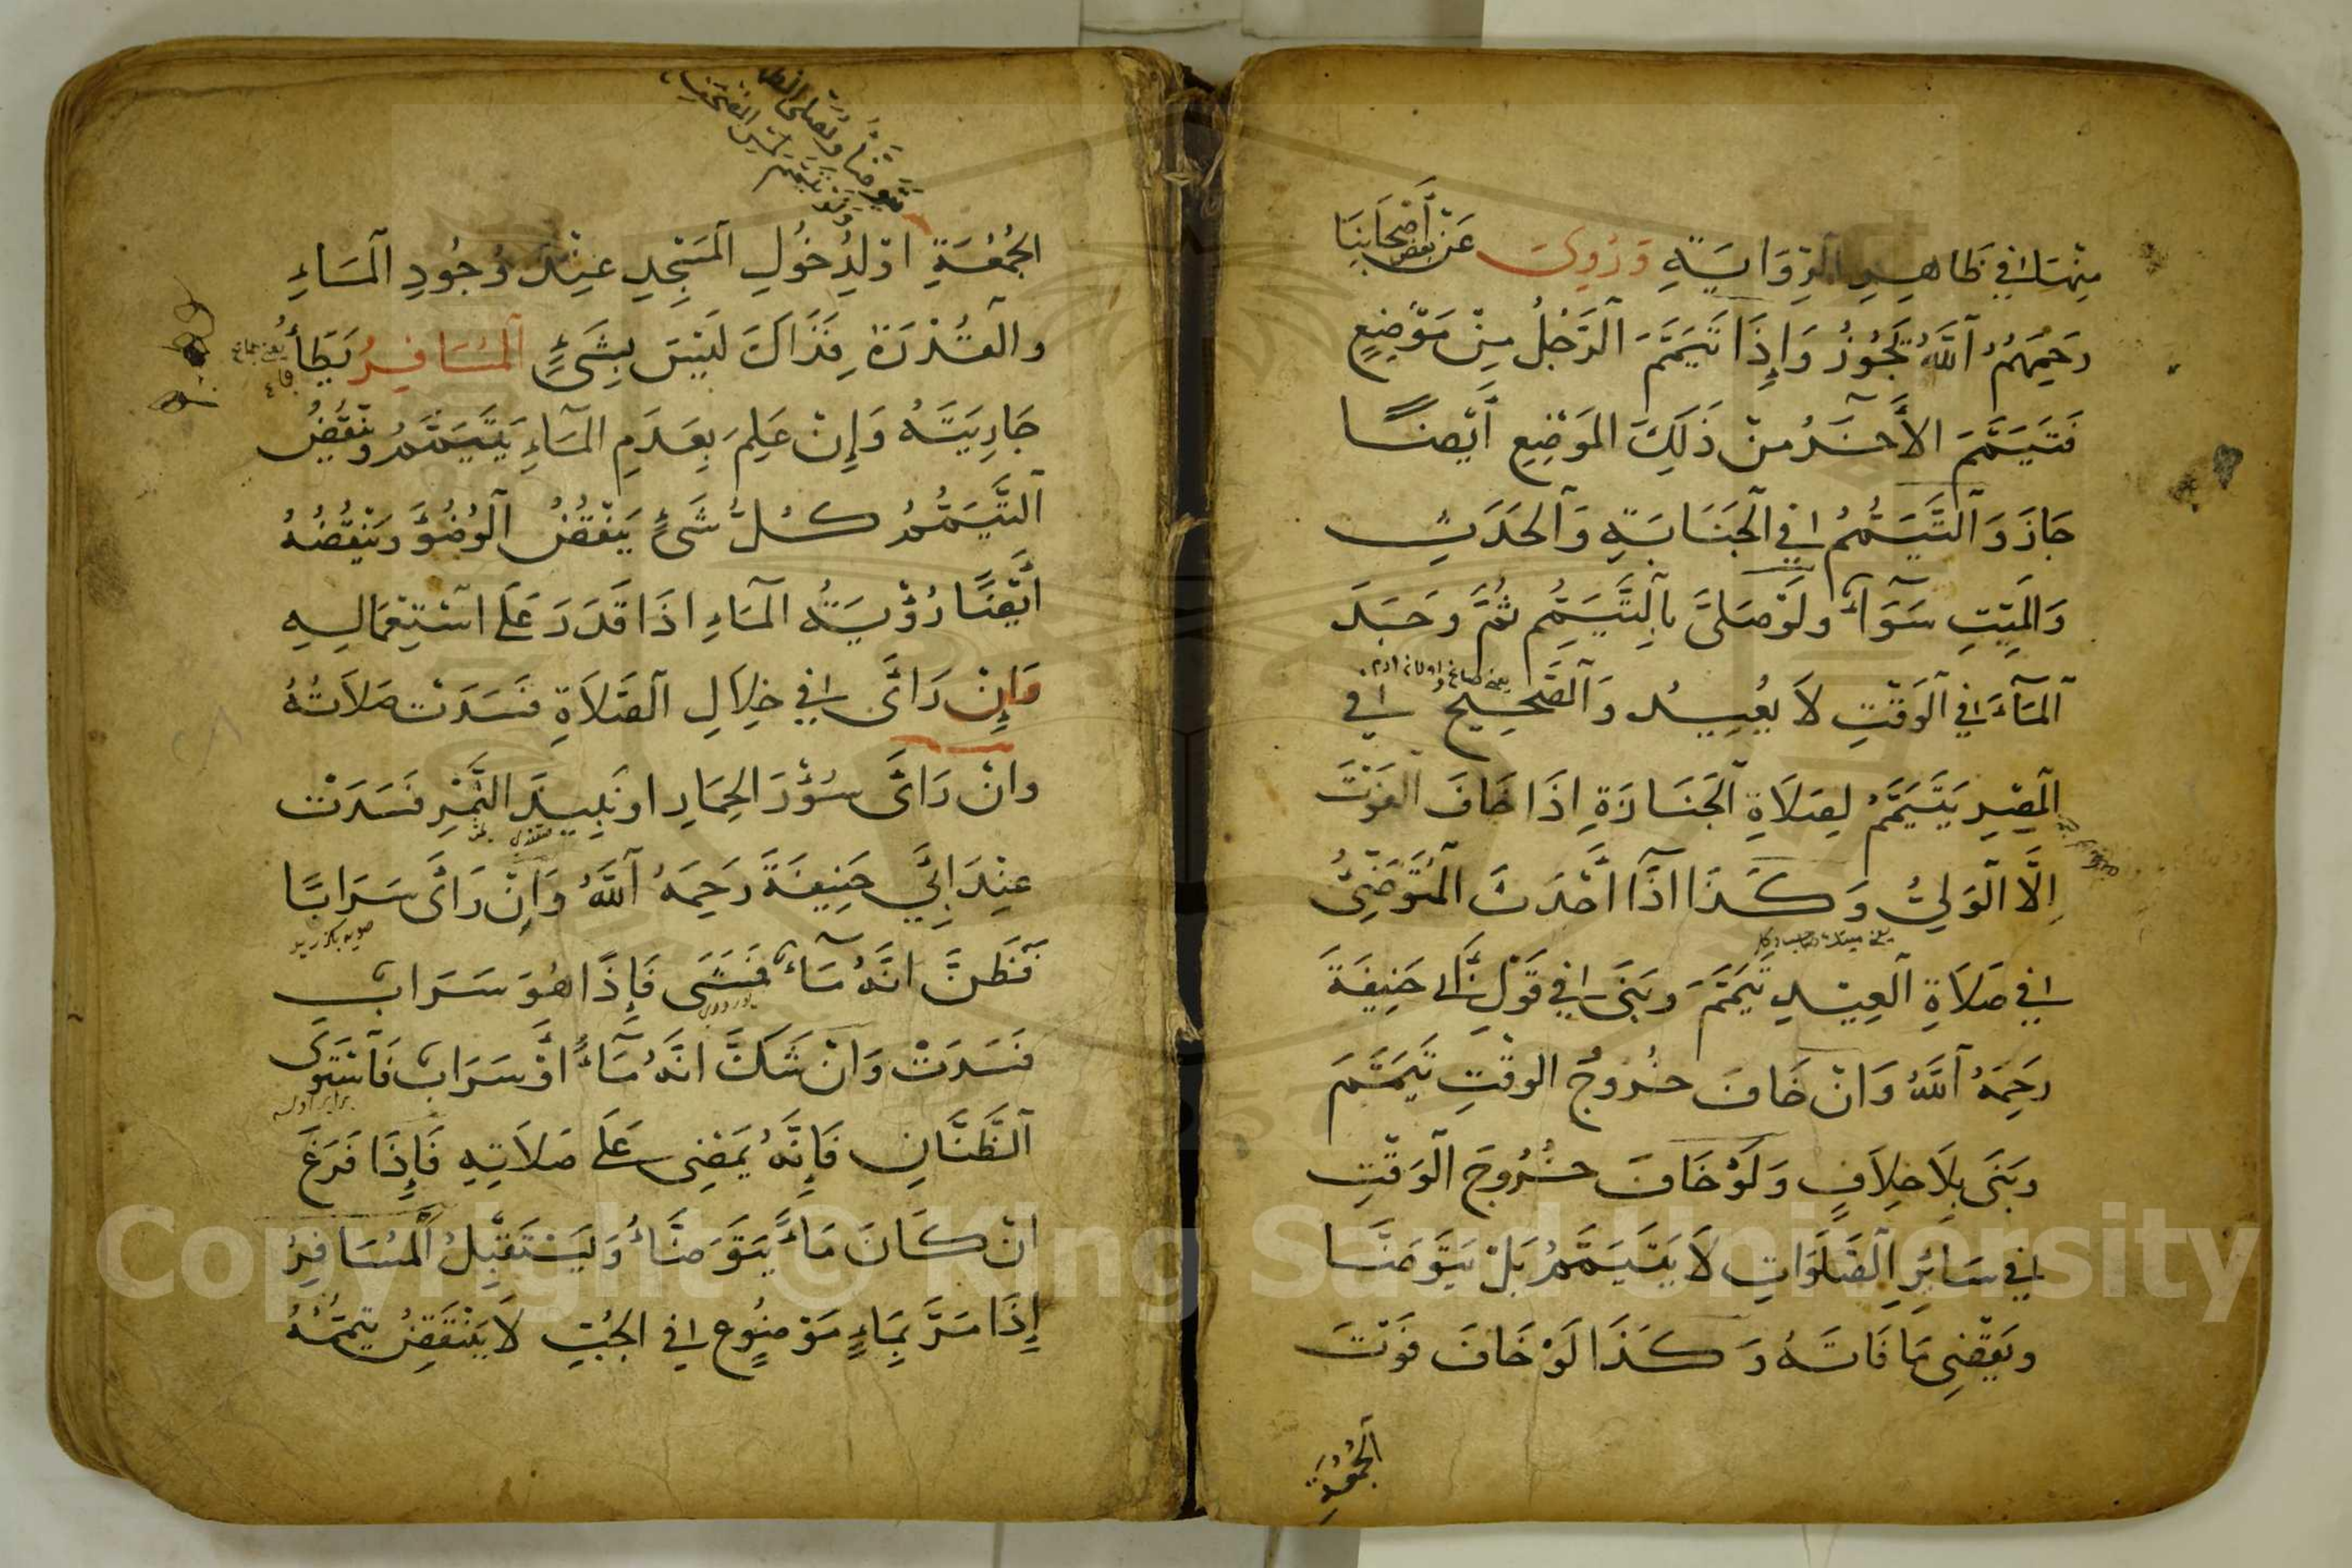 مِنْهُمَا فِي ظَاهِرِ الرِّوَايَةِ وَرُوِيَ عَنْ بَعْضِ أَصْحَابِنَا
رَحِمَهُمُ اللَّهُ يَجُوزُ وَإِذَا تَيَمَّمَ الرَّجُلُ مِنْ مَوْضِعٍ
فَتَيَمَّمَ الْأَخَرُ مِنْ ذَلِكَ الْمَوْضِعِ أَيْضًا
جَازَ وَالتَّيَمُّمُ فِي الْجَنَابَةِ وَالْحَدَثِ
وَالْمَيِّتِ سَوَآءٌ وَلَوْ صَلَّى بِالتَّيَمُّمِ ثُمَّ وَجَدَ
الْمَآءَ فِي الْوَقْتِ لَا يُعِيدُ وَالصَّحِيحُ فِي
الْمِصْرِ يَتَيَمَّمُ لِصَلَاةِ الْجَنَازَةِ إِذَا خَافَ الْفَوْتَ
إِلَّا الْوَلِيُّ وَكَذَا اذَا أَحْدَثَ الْمُتَوَضِّئُ
فِي صَلَاةِ الْعِيدِ تَيَمَّمَ وَبَنَى فِي قَوْلِ أَبِي حَنِيفَةَ
رَحِمَهُ اللَّهُ وَانْ خَافَ خُرُوجُ الْوَقْتِ تَيَمَّمَ
وَبَنَى بِلَا خِلَافٍ وَلَوْ خَافَ خُرُوجَ الْوَقْتِ
فِي سَائِرِ الصَّلَوَاتِ لَا يَتَيَمَّمُ بَلْ يَتَوَضَّا
وَيَقْضِي مَا فَاتَهُ وَكَذَا لَوْ خَافَ فَوْتَ
الْجُمُعَةِ
الْجُمُعَةِ اوْ لِدُخُولِ الْمَسْجِدِ عِنْدَ وُجُودِ الْمَاءِ
وَالْقُدْرَةِ فَذَاكَ لَيْسَ بِشَيْءٍ الْمُسَافِرُ يَطَأُ
جَارِيَتَهُ وَإِنْ عَلِمَ بِعَدَمِ الْمَآءِ يَتَيَمَّمُ وَيَنْقُضُ
التَّيَمُّمَ كُلُّ شَيْءٍ يَنْقُضُ الْوُضُوءَ وَيَنْقُضُهُ
أَيْضًا رُؤْيَةُ الْمَآءِ اذَا قَدَرَ عَلَى اسْتِعْمَالِهِ
وَإِنْ رَأَى فِي خِلَالِ الصَّلَاةِ فَسَدَتْ صَلَاتُهُ
وَانْ رَأَى سُؤْرَ الْحِمَارِ اوْ نَبِيذَ التَّمْرِ فَسَدَتْ
عِنْدَ ابِي حَنِيفَةَ رَحِمَهُ اللَّهُ وَإِنْ رَأَى سَرَابًا
فَظَنَّ انَّهُ مَآءٌ فَمَشَى فَإِذَا هُوَ سَرَابٌ
فَسَدَتْ وَانْ شَكَّ انَّهُ مَآءٌ أَوْ سَرَابٌ فَاسْتَوَى
الظَّنَّانِ فَإِنَّهُ يَمْضِي عَلَى صَلَاتِهِ فَإِذَا فَرَغَ
انْ كَانَ مَاءً يَتَوَضَّأُ وَيَسْتَقْبِلُ الْمُسَافِرُ
إِذَا مَرَّ بِمَاءٍ مَوْضُوعٍ فِي الْجُبِّ لَا يَنْتَقِضُ تَيَمُّمُهُ
Copyright © King Saud University